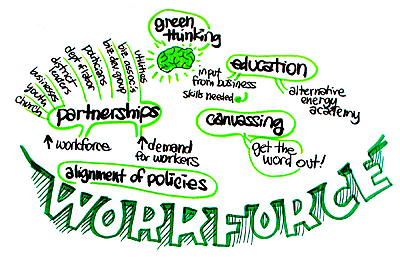 green
thinking
church
youth
businesses
district
leaders
dept of labor
politicians
biz dev group
biz assoc's
utilities
partnerships
↑ workforce
↑ demand
for workers
alignment of policies
education
input
from business
skills needed
alternative
energy
academy
canvassing
get the
word out!
WORKFORCE